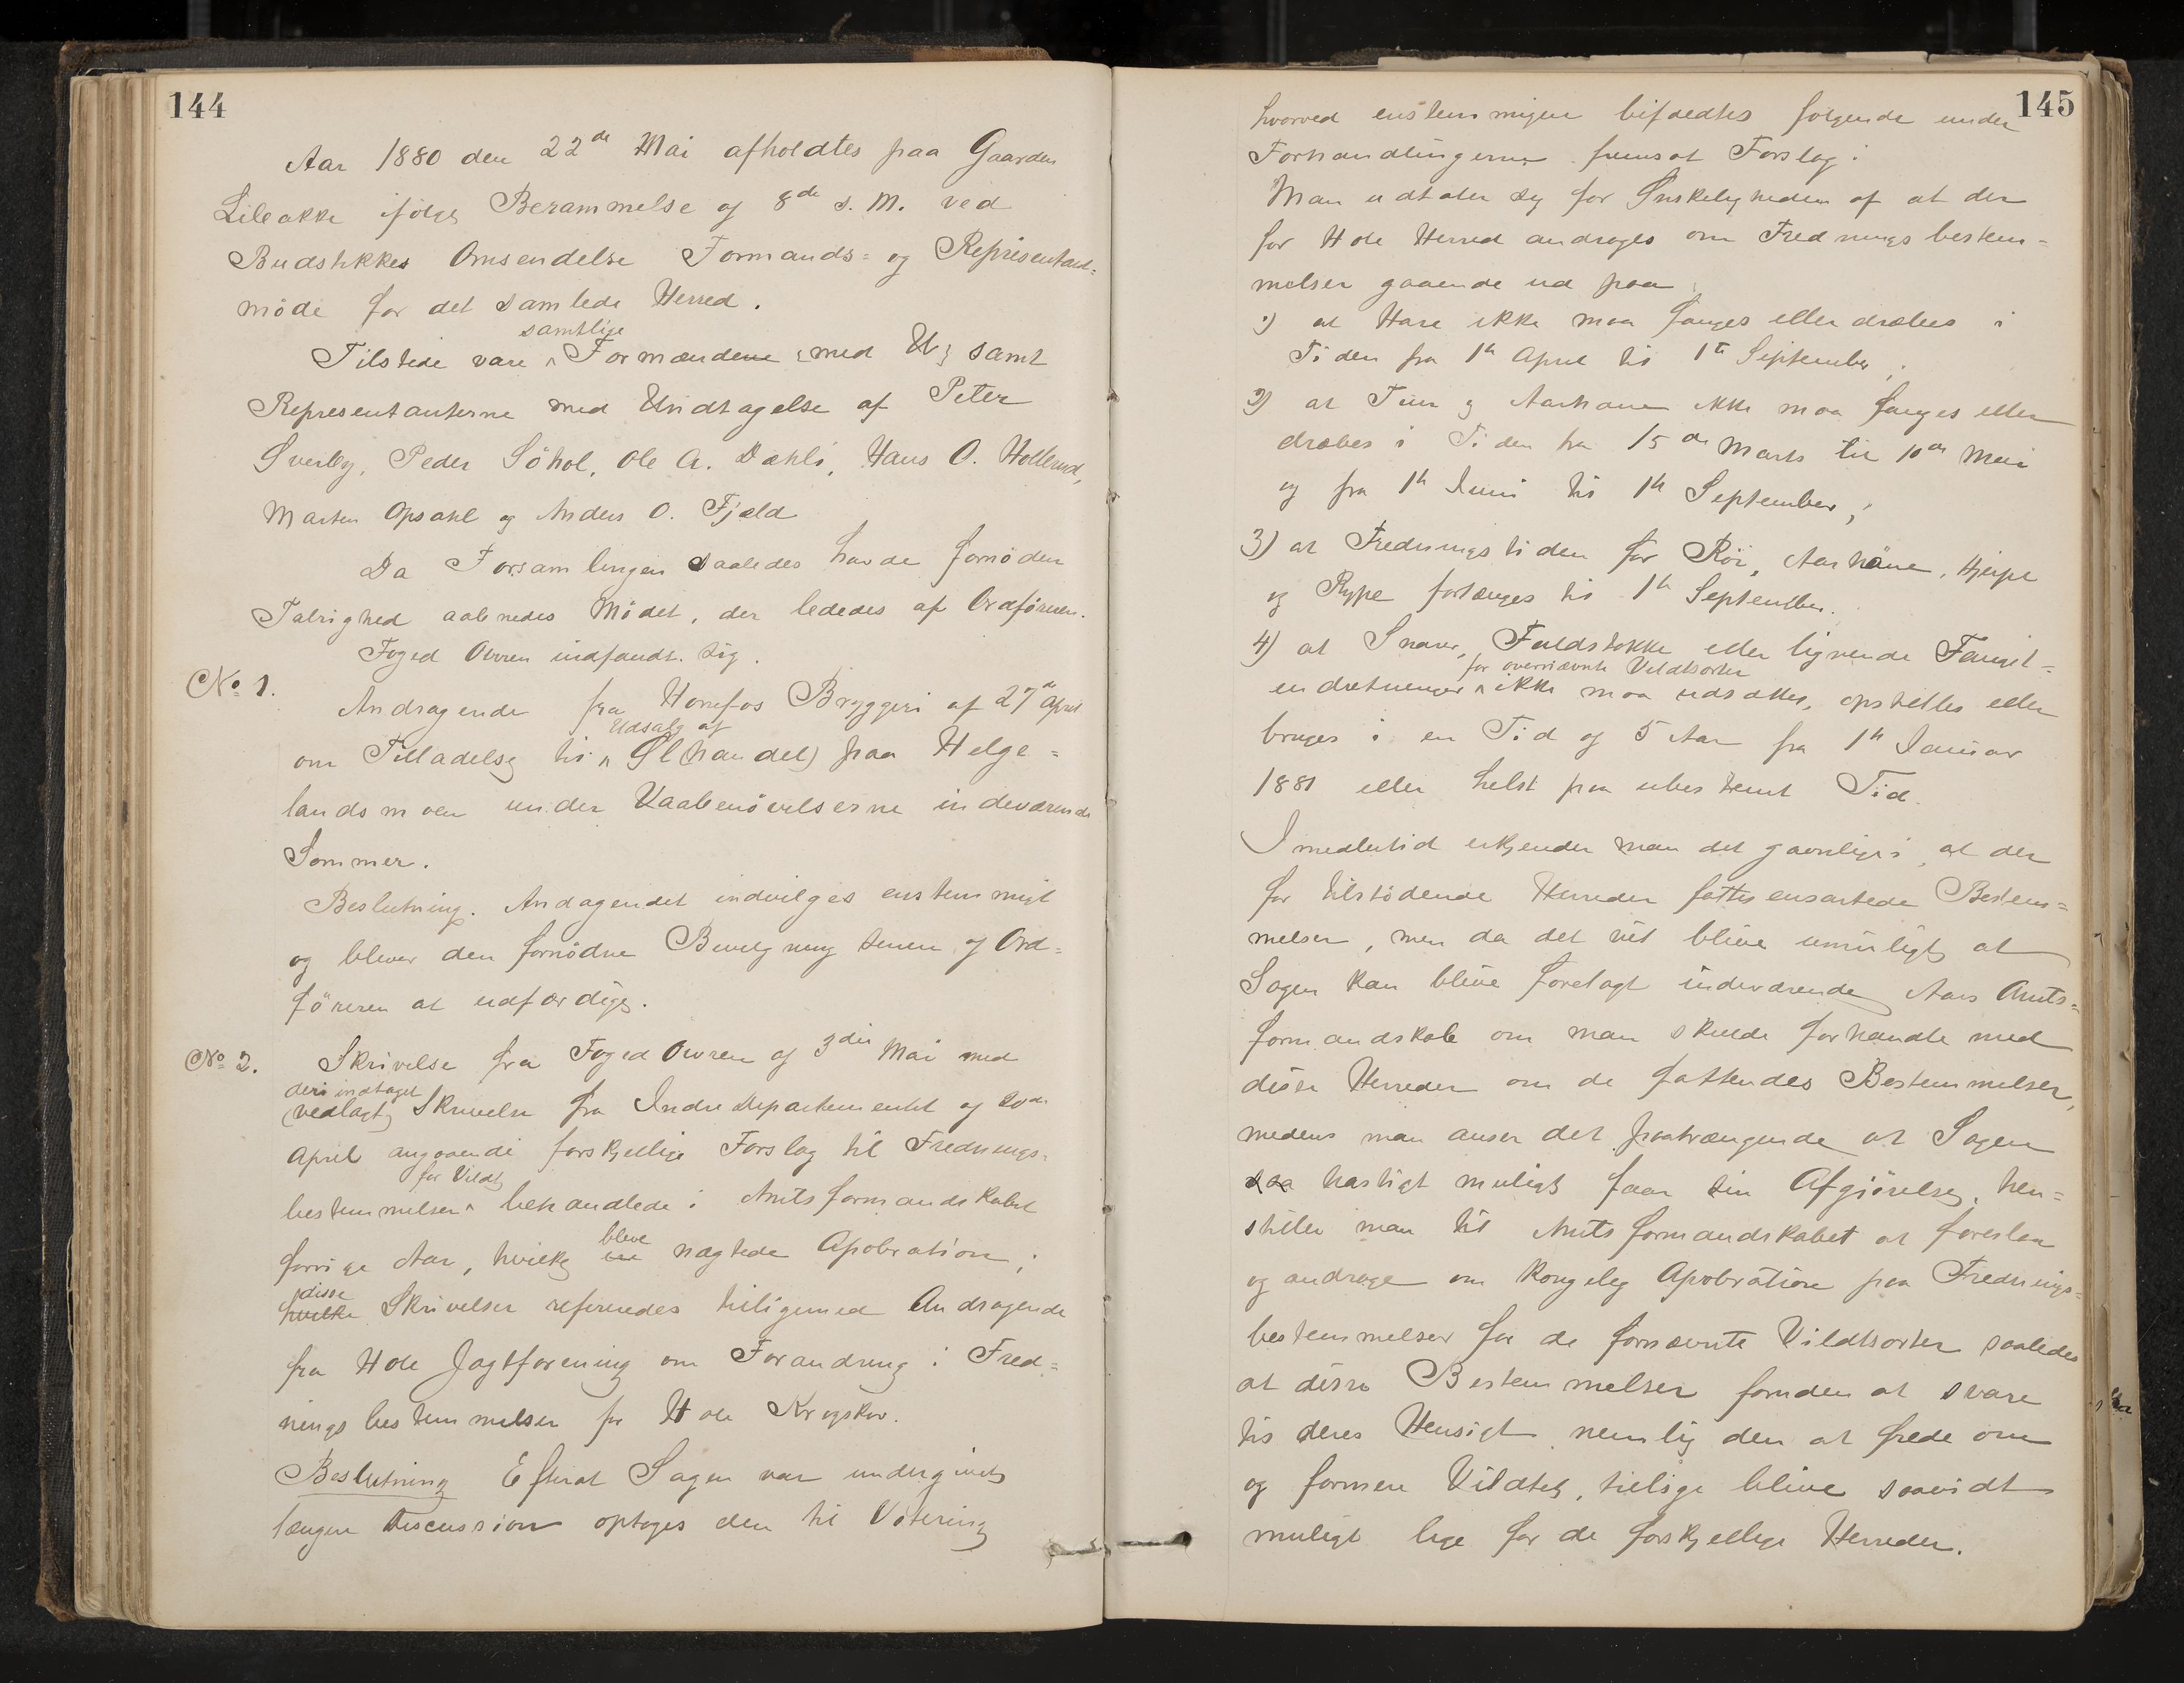 144
Aar 1880 den 22de Mai afholdtes paa Gaarden
Lileakke ifølge Berammelse af 8de d. M. ved
Budstikkes Omsendelse Formands= og Representant=
møde for det samlede Herred.
samtlige
Tilstede vare ^ Formændene (med U) samt
Representanterne med Undtagelse af Peter
Sverby, Peder Söhol, Ole A. Dæhli, Hans O. Hollerud,
Marten Opsahl og Anders O. Fjeld
Da Forsamlingen saaledes havde fornöden
Talrighed aabnedes Mödet, der lededes af Ordföreren.
Foged Owren indfandt sig.
No 1.
Andragende fra Honefos Bryggeri af 27de April
Udsalg af
om Tilladelse til ^ Øl(handel) paa Helge=
landsmoen under Vaabenövelserne indeværende
Sommer.
Beslutning. Andagendet indvilges enstemmigt
og bliver den fornödne Bevilgning senere af Ord=
föreren at udfærdige.
No 2. Skrivelse fra Foged Owren af 3die Mai med
deri indtaget
(vedlagt) Skrivelse fra Indredepartementet af 20de
April angaaende forskjellige Forslag til Frednings=
for Vildt
bestemmelser ^ behandlede i Amtsformandskabet
forrige Aar, hvilke bleve nægtede Apobration;
disse
hvilke Skrivelser refereredes tilligemed Andragende
fra Hole Jagtforening om Forandring i Fred=
ningsbestemmelser for Hole Krogskov.
Beslutning Efterat Sagen var undergivet
længere Discussion optoges den til Votering
145
hvorved enstemmigen bifaldtes følgende under
Forhandlingerne fremsat Forslag:
Man udtaler sig for Ønskeligheden af at der
for Hole Herred androges om Fredningsbestem=
melser gaaende ud paa
1) at Hare ikke maa fanges eller dræbes i
Tiden fra 1te April til 1te September;
2) at Tiur og Aarhane ikke maa fanges eller
dræbes i Tiden fra 15de Marts til 10de Mai
og fra 1te Juni til 1te September;
3) at Fredningstiden for Röi, Aarhöne, Hjerpe
og Rype forlænges til 1te September.
4) at Snarer, Faldstokke eller lignende Fangst=
for overnævnte Vildtsorter
indretninger ^ ikke maa udsættes, opstilles eller
bruges i en Tid af 5 Aar fra 1te Januar
1881 eller helst paa ubestemt Tid.
Imedlertid erkjender man det gavnlige i at der
for tilstödende Herreder fattes ensartede Bestem=
melser, men da det vil blive umuligt at
Sagen kan blive forelagt indeværende Aars Amts=
formandskab om man skulde forhandle med
disse Herreder om de fattendes Bestemmelser,
medens man anser det paatrængende at Sagen
saa hastigt muligt faar sin Afgjörelse, hen=
stiller man til Amtsformandskabet at foreslaa
og androge om Kongelig Apobration paa Frednings=
bestemmelser for de fornævnte Vildtsorter saaledes
at disse Bestemmelser foruden at svare
til deres Hensigt nemlig den at frede om
og formere Vildtet, tillige blive saavidt
muligt lige for de forskjellige Herreder.